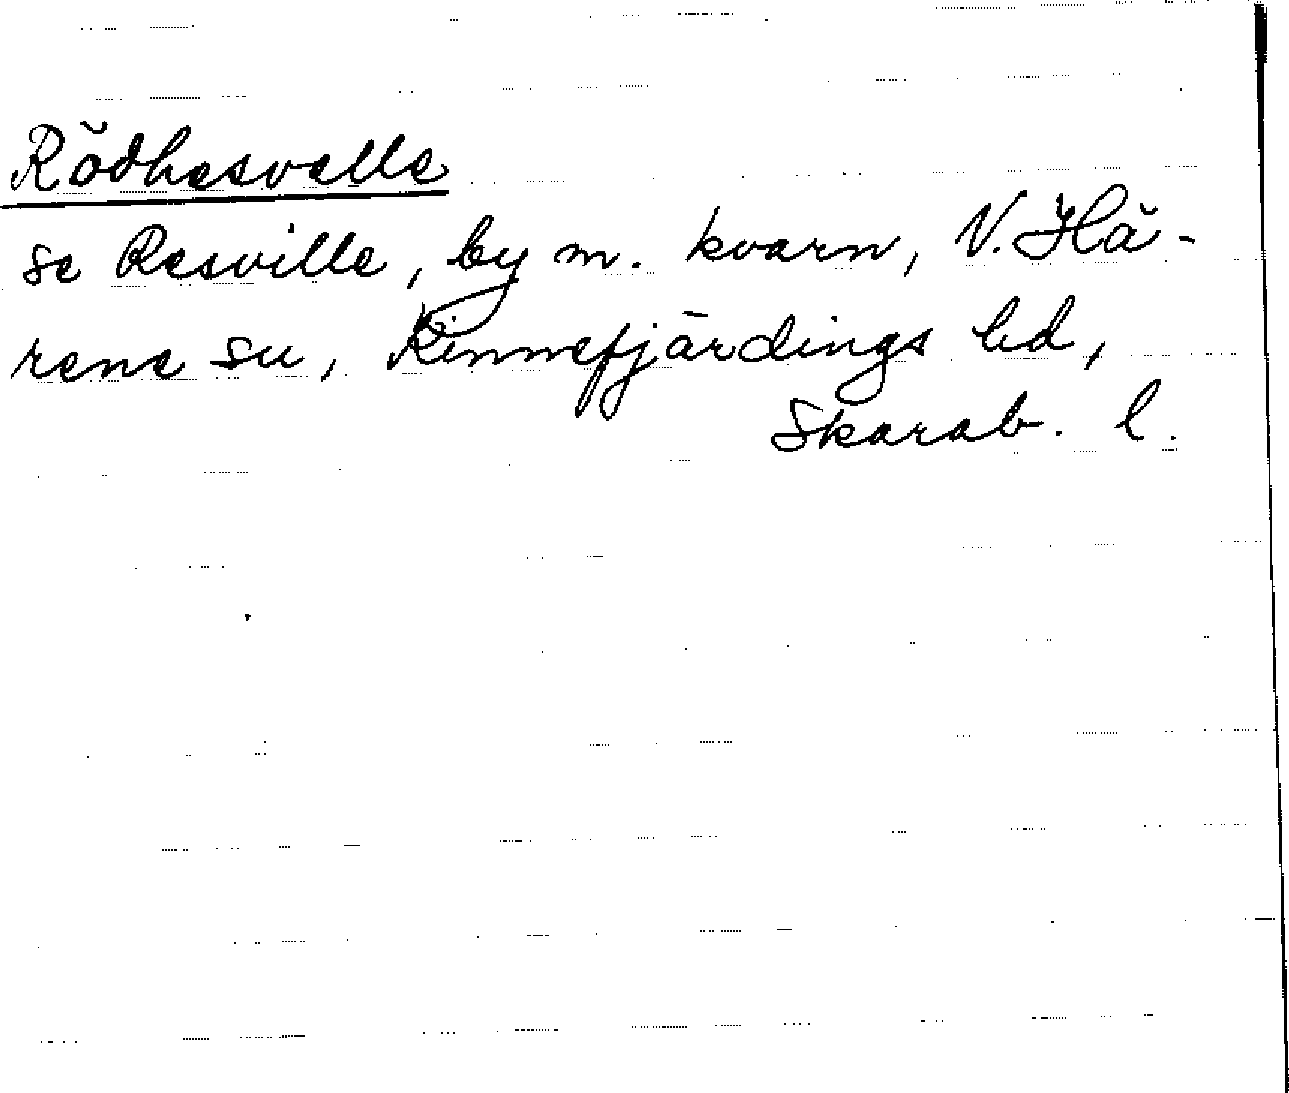 Rödhesvalle
se Resville, by m. kvarn, N. Hä-
rene sn, Kinnefjärdings hd,
Skarab. l.